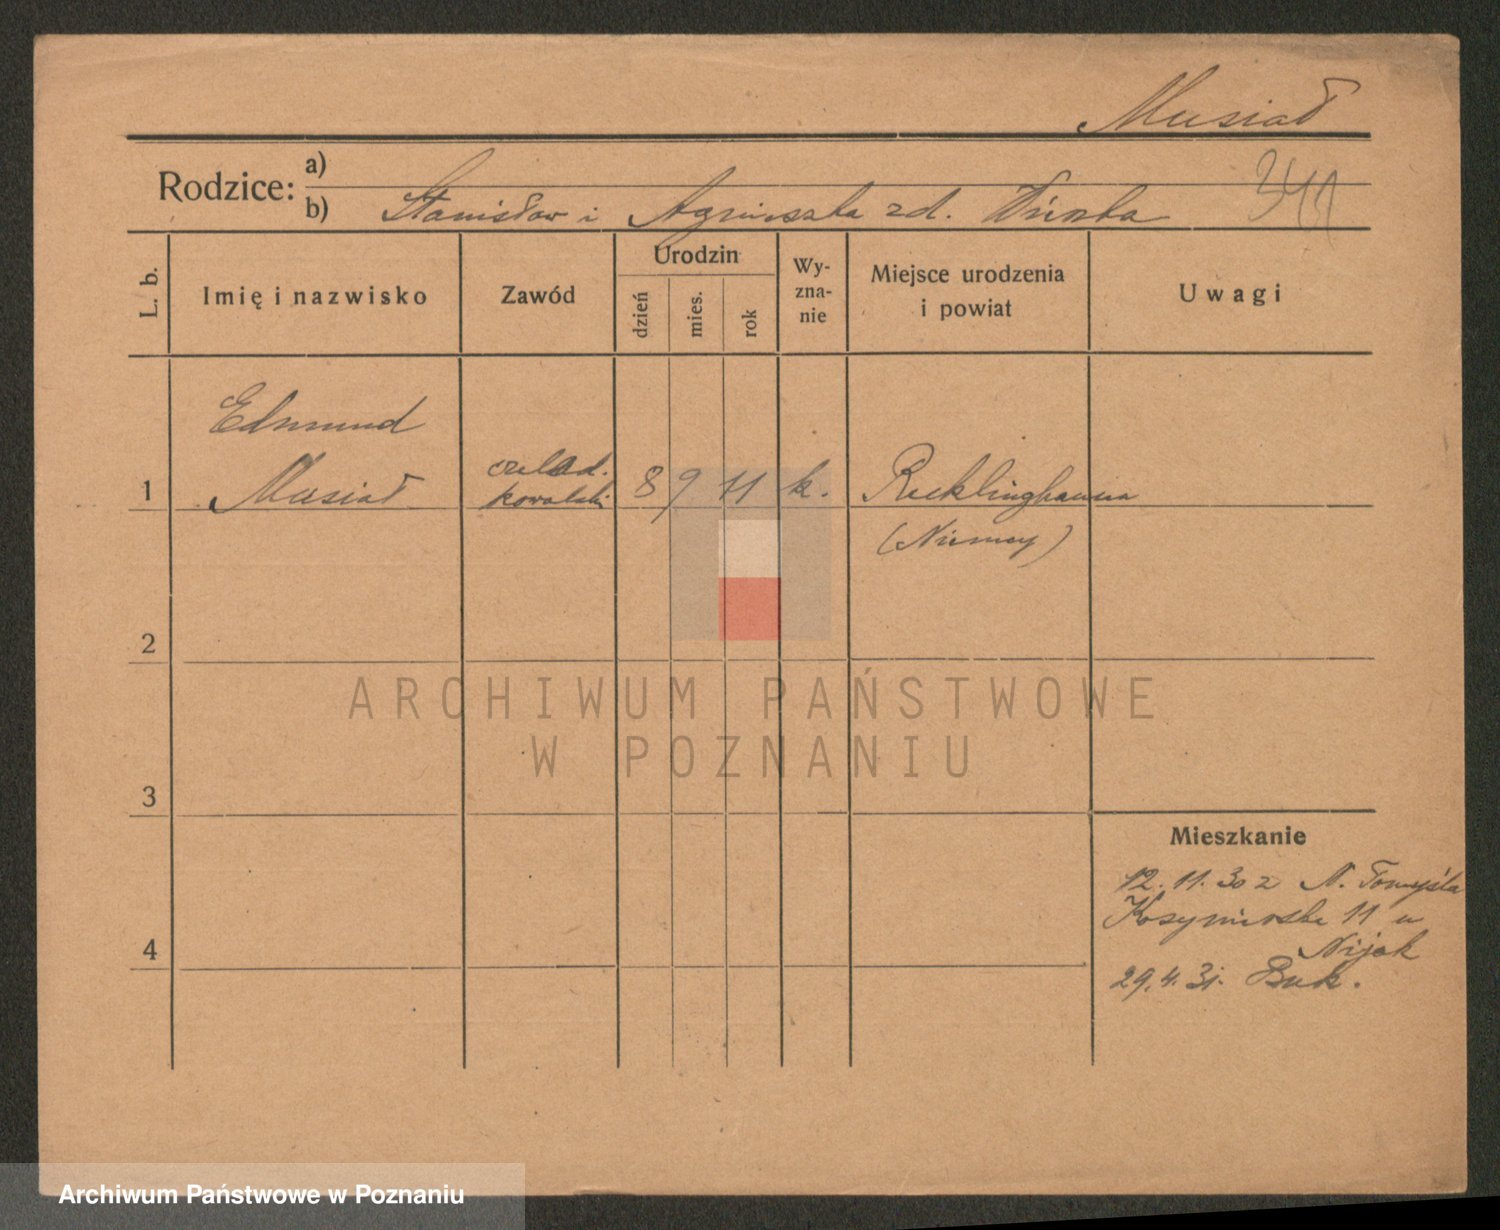 Musiał
Rodzice:
a)
b) Stanisław i Agnieszka zd.
341
L. b.
Imię i nazwisko
Zawód
Urodzin
dzień
mies.
rok
Wy-
zna-
nie
Miejsce urodzenia
i powiat
Uwagi
Edmund
1 Musiał
czelad.
kowalski
8 9 11 k. Recklinghausen
(Niemcy)
2
3
4
Mieszkanie
12. 11. 30 z N. Tomyśla
11 u
Nijak
29. 4. 31. Buk.
ARCHIWUM PAŃSTWOWE
W POZNANIU
Archiwum Państwowe w Poznaniu